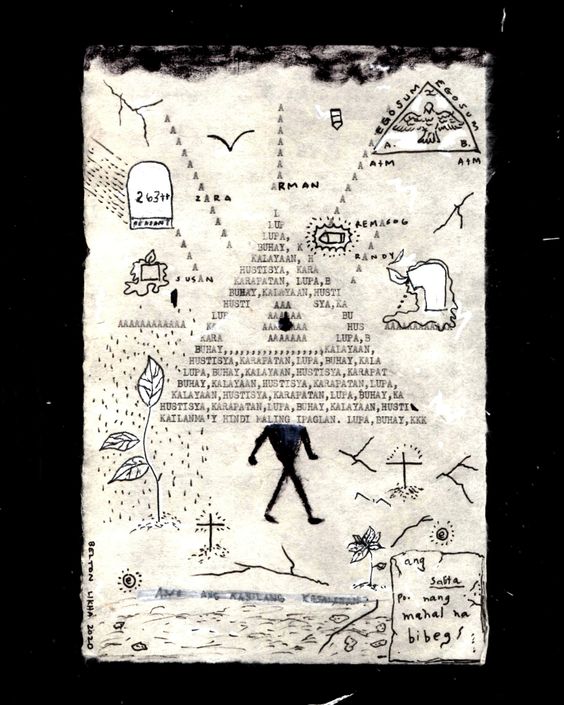 EGOSUM EGOSUM
A. B.
A+M A+M
ARMAN
ZARA
REMAGOG
RANDY
SUSAN
L
LUP
LUPA,
BUHAY, K
KALAYAAN, H
HUSTISYA, KARA
KARAPATAN, LUPA,B
BUHAY,KALAYAAN,HUSTI
HUSTI AAA SYA,KA
LUP AAAAAA BU
KA AAAAAAA HUS
KARA AAAAAAA LUPA,B
AAAAAAAAAAAA
BUHAY,,,,,,,,,,,,,,,,,,KALAYAAN,
HUSTISYA,KARAPATAN,LUPA,BUHAY,KALA
LUPA,BUHAY,KALAYAAN,HUSTISYA,KARAPAT
BUHAY,KALAYAAN,HUSTISYA,KARAPATAN,LUPA,
KALAYAAN,HUSTISYA,KARAPATAN,LUPA,BUHAY,KA
HUSTISYA,KARAPATAN,LUPA,BUHAY,KALAYAAN,HUSTI
KAILANMA'Y HINDI MALING IPAGLAN. LUPA,BUHAY,KKK
ANG KANILANG
ang
sabta
po. nang
mahal na
bibeg!
BELTON LIKHA 2020